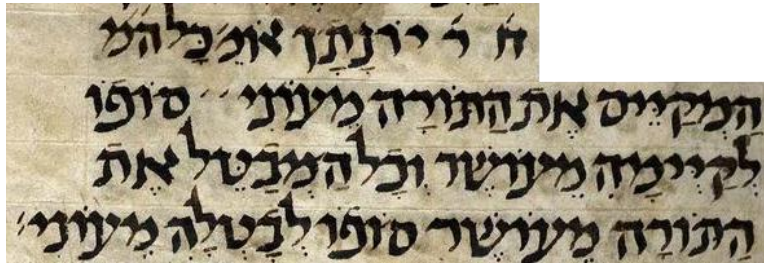 ח ר יוֹנָתָן אוֹמ׳ כָּל הַמ׳
הַמְקַיֵּים אֶת הַתּוֹרָה מֵעוֹנִי ׳׳ סוֹפוֹ
לְקַיְּימָהּ מֵעוֹשֶׁר וְכָל הַמְבַטֵּל אֶת
הַתּוֹרָה מֵעוֹשֶׁר סוֹפוֹ לְבַטְּלָהּ מֵעוֹנִי׳